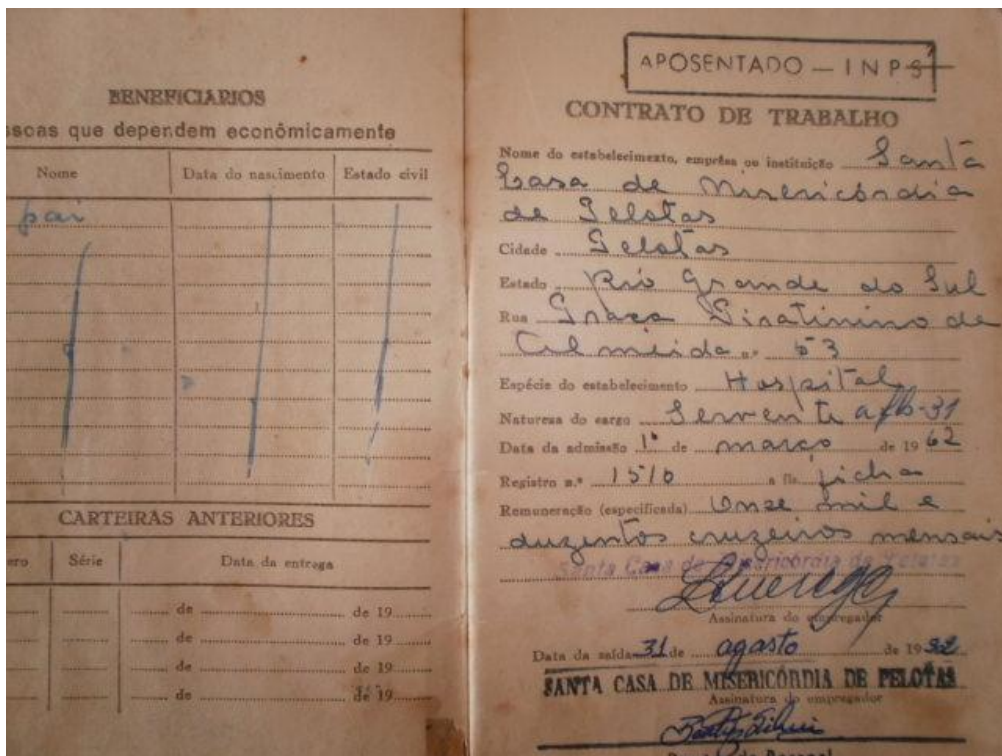 BENEFICIARIOS
ssoas que dependem econômicamente
Nome Data do nascimento Estado civil
pai
CARTEIRAS ANTERIORES
ero Série Data da entrega
de de 19
de de 19
de de 19
de de 19
APOSENTADO — INPS
CONTRATO DE TRABALHO
Nome do estabelecimento, emprêsa ou instituição Santa
Casa de Misericórdia
de Pelotas
Cidade Pelotas
Estado Rio Grande do Sul
Rua Praça Piratinino de
Almeida n.º 53
Espécie do estabelecimento Hospital
Natureza do cargo Servente
Data da admissão 1º de março de 19 62
Registro n.º 1510 a fls. ficha
Remuneração (especificada) Onze mil e
duzentos cruzeiros mensais
Santa Casa de Misericórdia de Pelotas
Assinatura do empregador
Data da saída 31 de agasto de 19
SANTA CASA DE MISERICÓRDIA DE PELOTAS
Assinatura do empregador